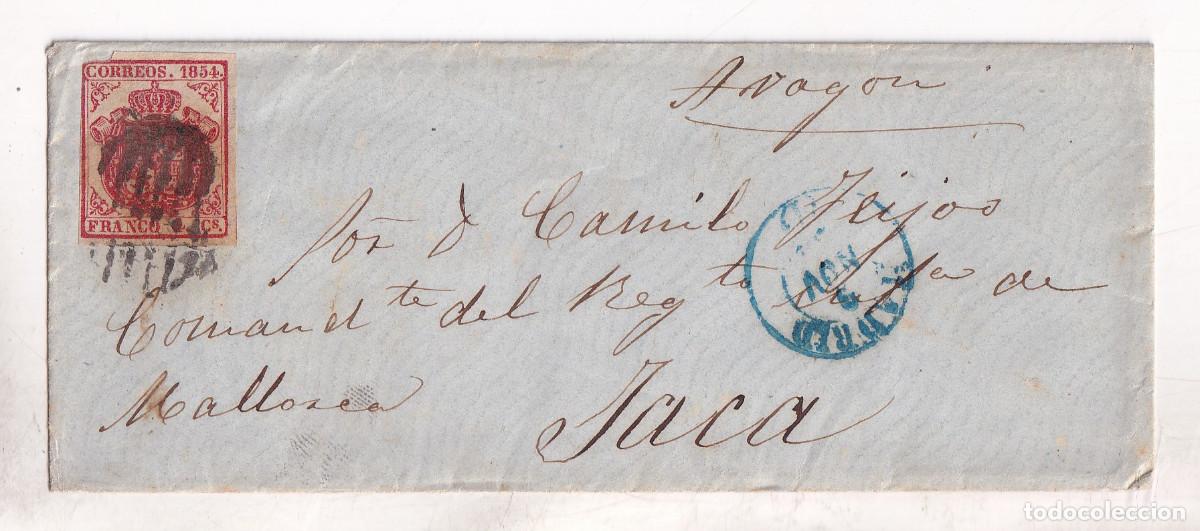 CORREOS. 1854.
FRANCO 4 Cs.
Aragon
Sor D Camilo Feijoo
Comandte del Regto Infa de
Mallorca
Jaca
MADRID
NOV
todocoleccion